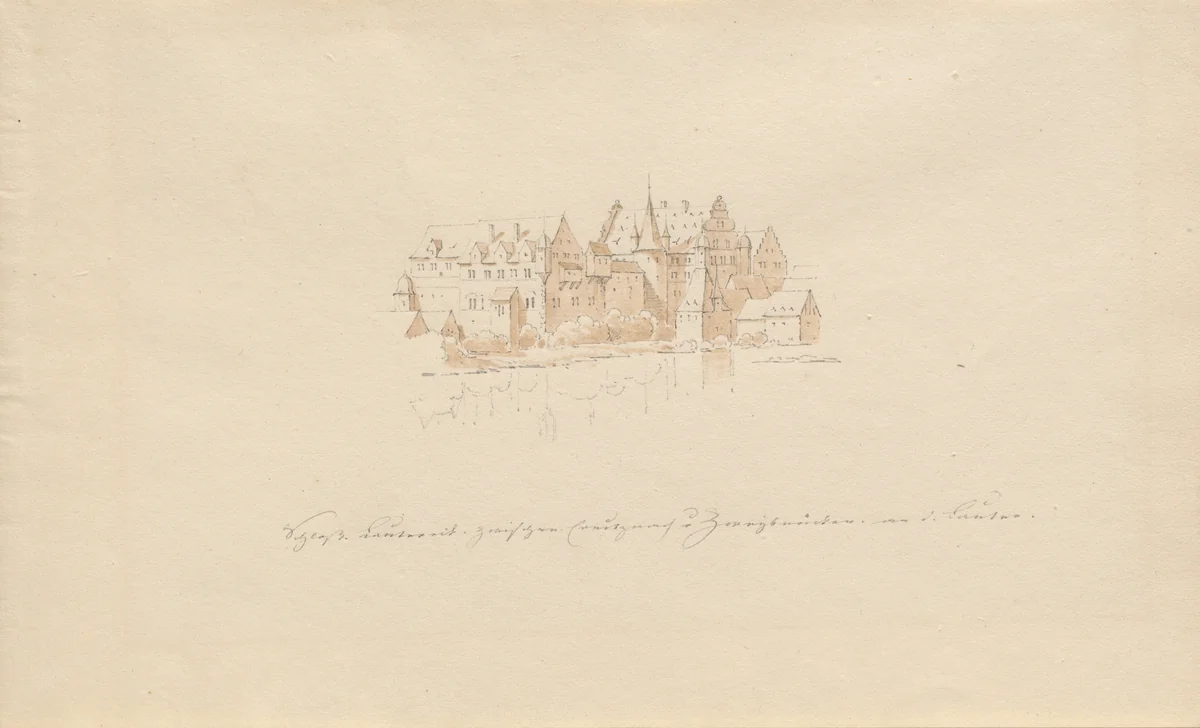 Schloß. Lautereck. zwischen Creutznach u Zweybrücken. an d. Lauter.